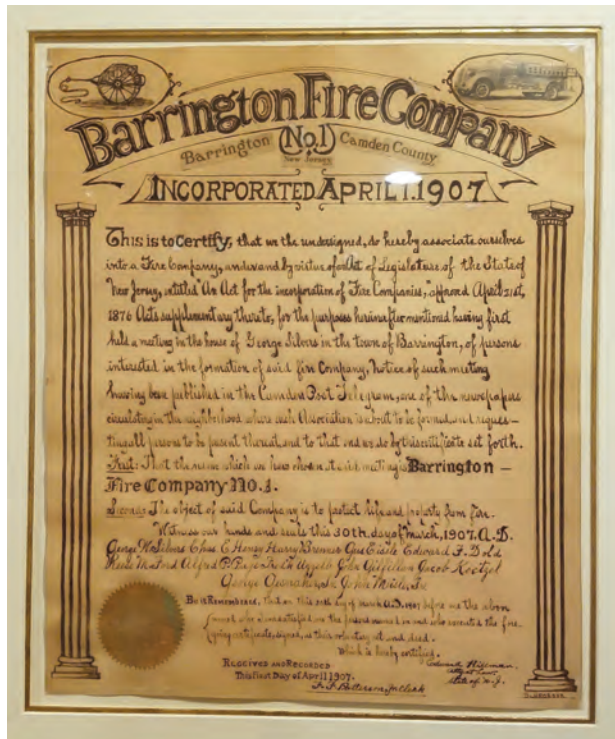 Barrington Fire Company
Barrington (No.1) Camden County
New Jersey
INCORPORATED APRIL 1.1907
This is to Certify, that we the undersigned, do hereby associate ourselves
into a Fire Company, under and by virtue of an Act of Legislature of the State of
New Jersey, entitled "An Act for the incorporation of Fire Companies," approved April 21st,
1876 Acts supplementary thereto, for the purposes hereinafter mentioned having first
held a meeting in the house of George Silvers in the town of Barrington, of persons
interested in the formation of said fire Company, Notice of such meeting
having been published in the Camden Post Telegram, one of the newspapers
circulating in the neighborhood where such Association is about to be formed, and reques-
ting all persons to be present thereat, and to that end we do by this certificate set forth.
First: That the name which we have chosen at said meeting is Barrington —
Fire Company No. 1.
Second: The object of said Company is to protect life and property from fire.
Witness our hands and seals this 30th. day of March, 1907. A.D.
George W. Silvers Chas. E. Henry Harry Brewer Gus Eisele Edward F. Dold
Ford Alfred P. John Gilfillan Jacob
George John
Be it Remembered, that on this 30th day of March A.D. 1907 before me the above
named who I am satisfied are the persons named in and who executed the fore-
going certificate, signed, as their voluntary act and deed.
Which is hereby certified.
RECEIVED AND RECORDED
This First Day of April 1907.
F. F. Patterson, Jr. Clerk
Edward
Atty at Law.
State of N.J.